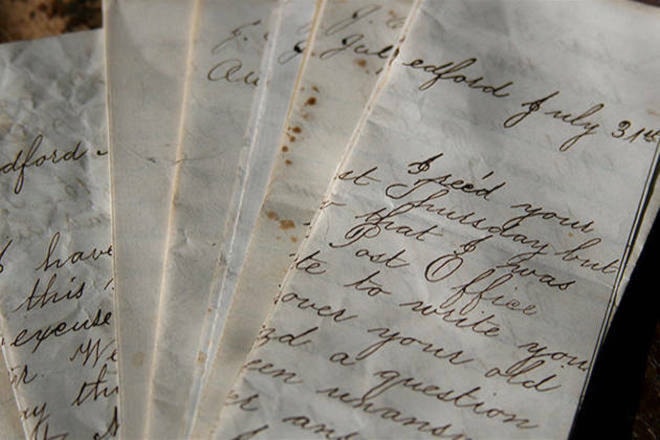 dford
I have
this
excuse
r. We
y thi
J.
Au
J.
Jul
edford July 31st
I rec'd your
st Thursday but
that I was
Post Office
te to write you
over your old
nd a question
een unans
er an